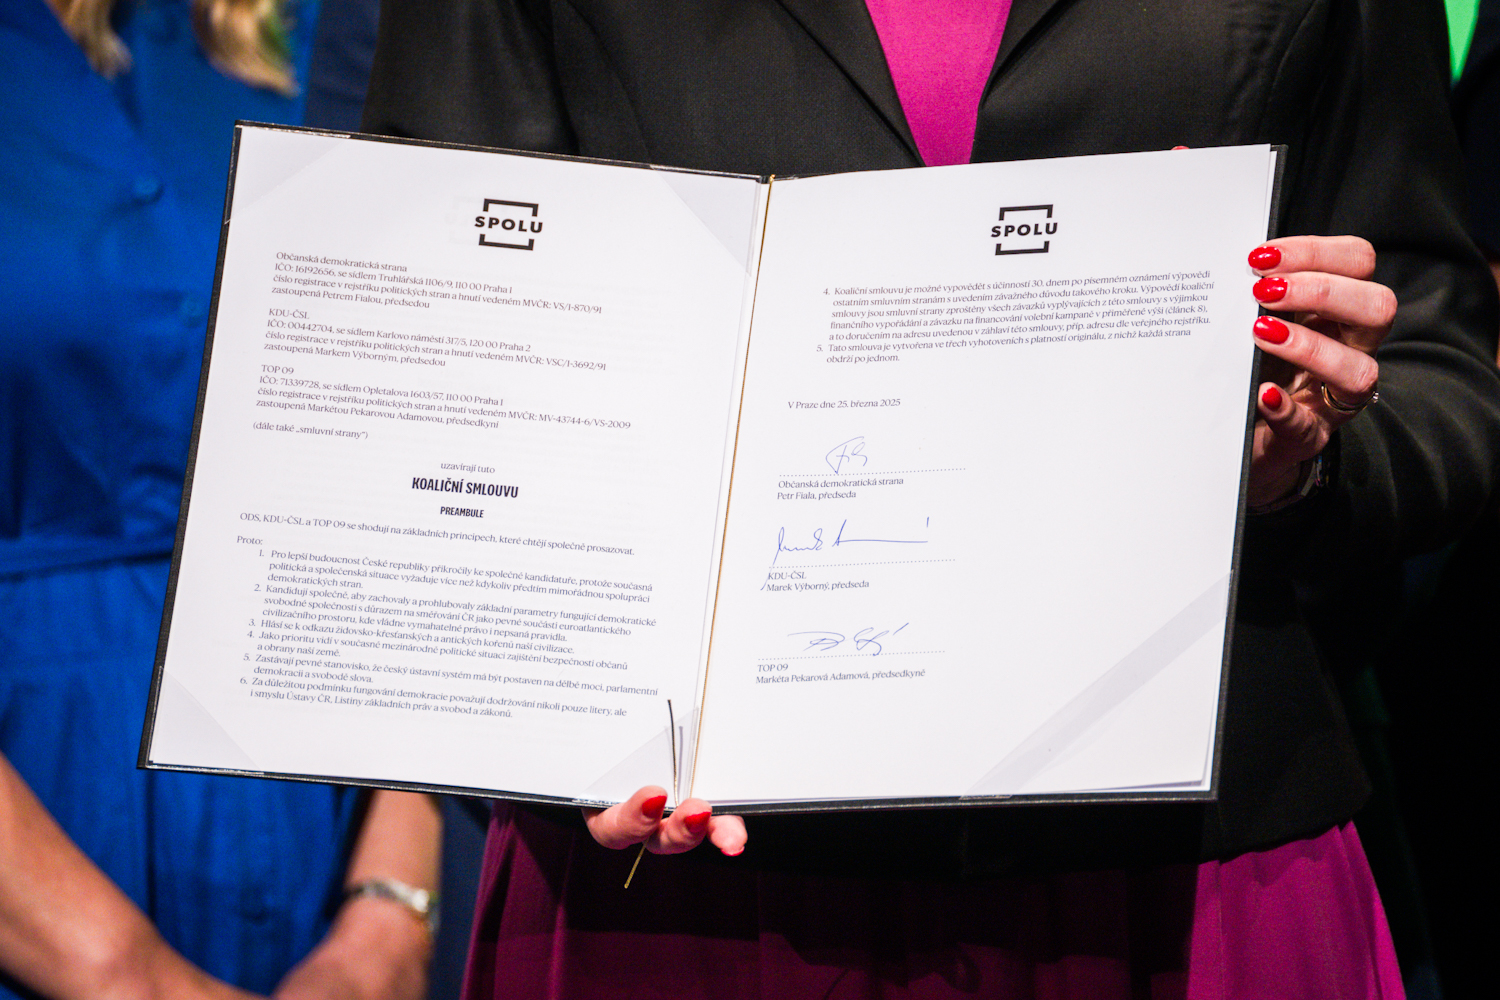 SPOLU
Občanská demokratická strana
IČO: 16192656, se sídlem Truhlářská 1106/9, 110 00 Praha 1
číslo registrace v rejstříku politických stran a hnutí vedeném MVČR: VS/1-870/91
zastoupená Petrem Fialou, předsedou
KDU-ČSL
IČO: 00442704, se sídlem Karlovo náměstí 317/5, 120 00 Praha 2
číslo registrace v rejstříku politických stran a hnutí vedeném MVČR: VSC/1-3692/91
zastoupená Markem Výborným, předsedou
TOP 09
IČO: 71339728, se sídlem Opletalova 1603/57, 110 00 Praha 1
číslo registrace v rejstříku politických stran a hnutí vedeném MVČR: MV-43744-6/VS-2009
zastoupená Markétou Pekarovou Adamovou, předsedkyní
(dále také „smluvní strany“)
uzavírají tuto
KOALIČNÍ SMLOUVU
PREAMBULE
ODS, KDU-ČSL a TOP 09 se shodují na základních principech, které chtějí společně prosazovat.
Proto:
1. Pro lepší budoucnost České republiky přikročily ke společné kandidatuře, protože současná
politická a společenská situace vyžaduje více než kdykoliv předtím mimořádnou spolupráci
demokratických stran.
2. Kandidují společně, aby zachovaly a prohlubovaly základní parametry fungující demokratické
svobodné společnosti s důrazem na směřování ČR jako pevné součásti euroatlantického
civilizačního prostoru, kde vládne vymahatelné právo i nepsaná pravidla.
3. Hlásí se k odkazu židovsko-křesťanských a antických kořenů naší civilizace.
4. Jako prioritu vidí v současné mezinárodně politické situaci zajištění bezpečnosti občanů
a obrany naší země.
5. Zastávají pevné stanovisko, že český ústavní systém má být postaven na dělbě moci, parlamentní
demokracii a svobodě slova.
6. Za důležitou podmínku fungování demokracie považují dodržování nikoli pouze litery, ale
i smyslu Ústavy ČR, Listiny základních práv a svobod a zákonů.
SPOLU
4. Koaliční smlouvu je možné vypovědět s účinností 30. dnem po písemném oznámení výpovědi
ostatním smluvním stranám s uvedením závažného důvodu takového kroku. Výpovědí koaliční
smlouvy jsou smluvní strany zproštěny všech závazků vyplývajících z této smlouvy s výjimkou
finančního vypořádání a závazku na financování volební kampaně v přiměřené výši (článek 8),
a to doručením na adresu uvedenou v záhlaví této smlouvy, příp. adresu dle veřejného rejstříku.
5. Tato smlouva je vytvořena ve třech vyhotoveních s platností originálu, z nichž každá strana
obdrží po jednom.
V Praze dne 25. března 2025
Občanská demokratická strana
Petr Fiala, předseda
KDU-ČSL
Marek Výborný, předseda
TOP 09
Markéta Pekarová Adamová, předsedkyně